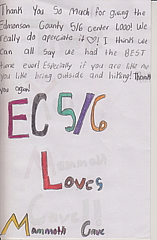 Thank You So Much for giving the
Edmonson County 5/6 center 1,000! We
really do apreciate it ♡! I think we
can all say we had the BEST
time ever! Especially if you are like me
you like being outside and hiking! Thank
you again!
EC 5/6
Loves
Mammoth Cave